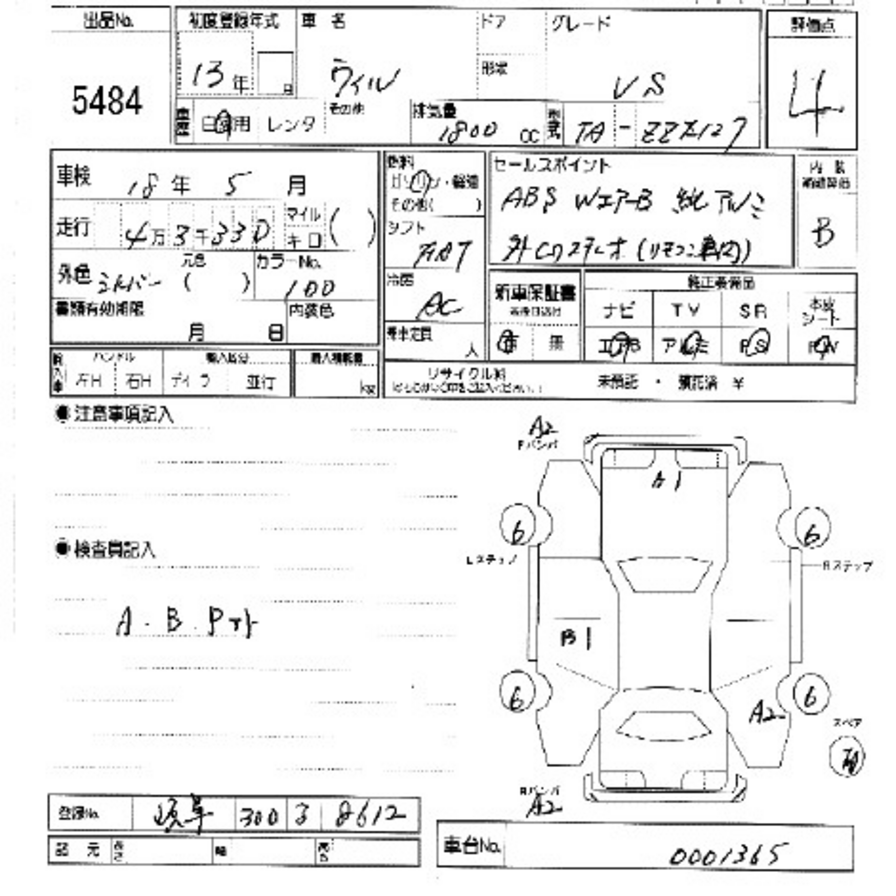 出品No. 初度登録年式 車名 ドア グレード 評価点
5484 13年 月 ウィル 形状 VS 4
車歴 自家用 レンタ その他 排気量 1800 cc 型式 TA-ZZE127
車検 18年 5月 燃料 ガソリン・軽油 その他( ) セールスポイント 内装
ABS WエアーB 純アルミ B
走行 4万3千330 マイル キロ ( ) シフト FAT
外CDステレオ(リモコン車内)
外色 シルバー 元色 ( ) カラーNo. 100 冷房 AC 新車保証書 純正装備品
ナビ TV SR 本皮シート
書類有効期限 月 日 内装色 乗車定員 人 有 無 エアB アルミ PS PW
輸入車 ハンドル 左H 右H 輸入区分 ディーラ 並行 kg リサイクル料 未預託・預託済 ¥
●注意事項記入
A2
Fバンパ
A1
6 6
●検査員記入
Lステップ Rステップ
A・B・Pフト
B1
6 A2 6
スペア
Rバンパ
A2
登録No. 岐阜 300 る 8612
諸元 長さ 幅 高さ 車台No. 0001365